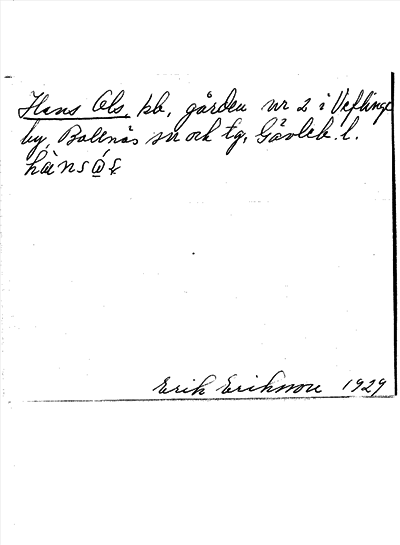 Hans Ols, kb, gården nr 2 i Veflinge
by, Bollnäs sn och tg, Gävleb. l.
Erik Eriksson 1929